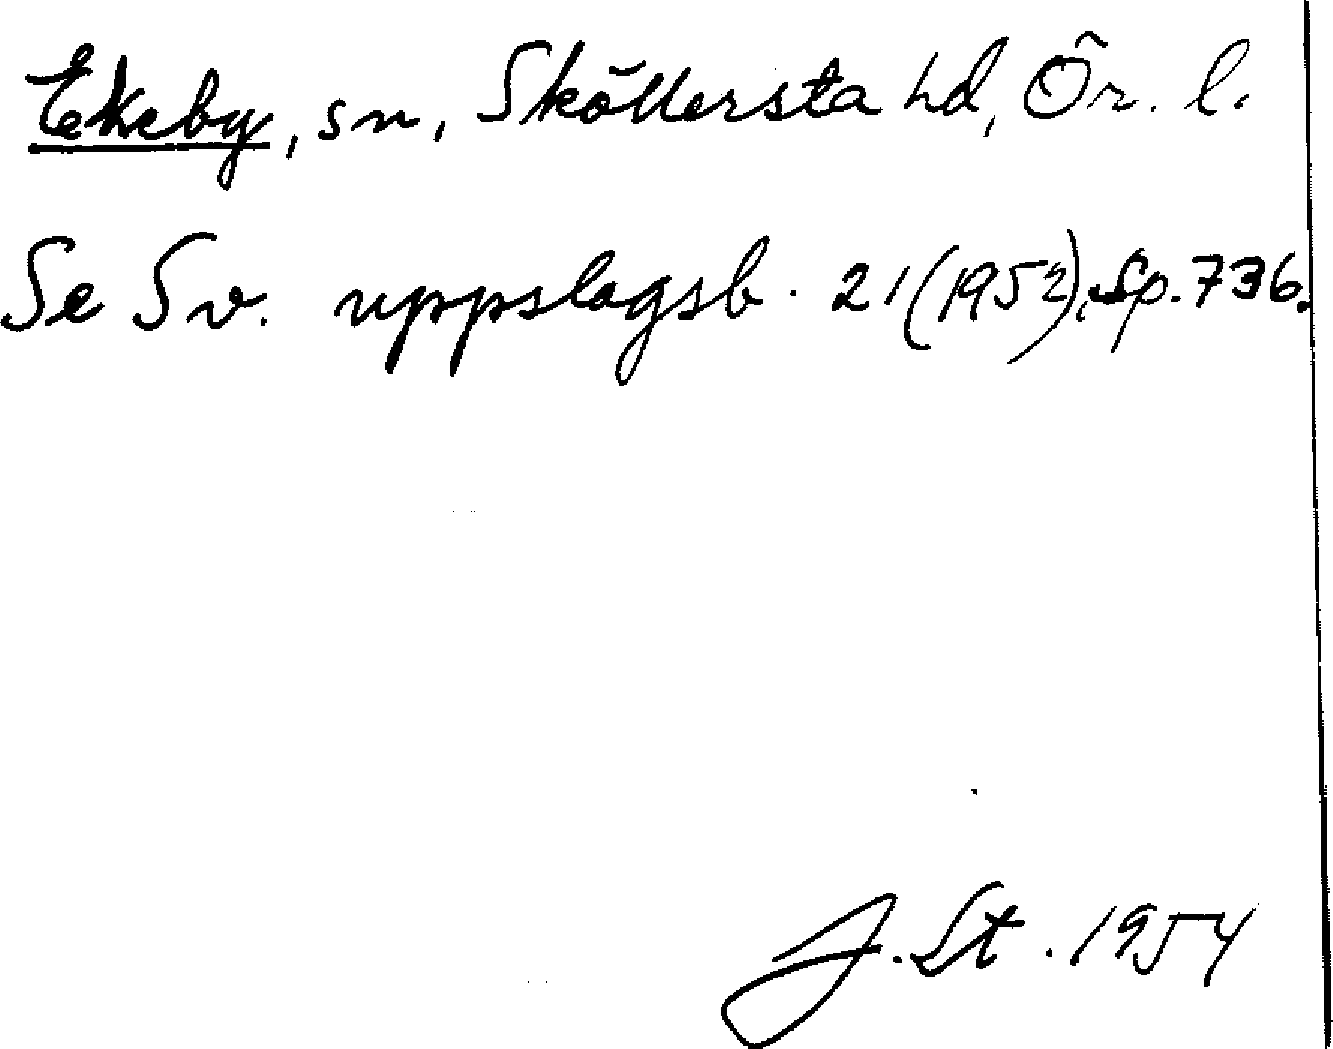 Ekeby, sn, Sköllersta hd, Ör. l.
Se Sv. uppslagsb. 21 (1952), Sp. 736.
J. St. 1954